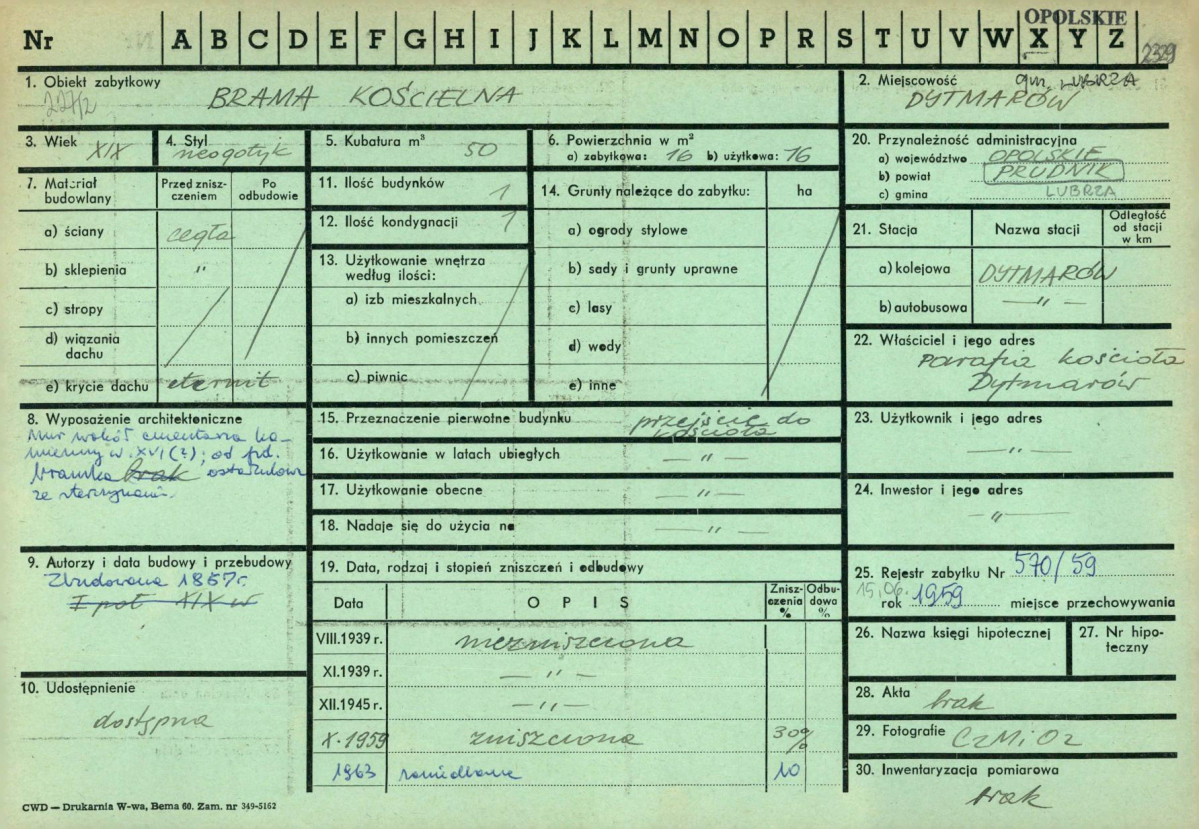 OPOLSKIE
Nr A B C D E F G H I J K L M N O P R S T U V W X Y Z
2329
1. Obiekt zabytkowy
227/2
BRAMA KOŚCIELNA
2. Miejscowość gm. LUBRZA
DYTMARÓW
3. Wiek XIX
4. Styl neogotyk
5. Kubatura m³ 50
6. Powierzchnia w m²
a) zabytkowa: 16 b) użytkowa: 16
20. Przynależność administracyjna
a) województwo OPOLSKIE
b) powiat PRUDNIK
c) gmina LUBRZA
7. Materiał budowlany
Przed zniszczeniem
Po odbudowie
a) ściany cegła
b) sklepienia "
c) stropy
d) wiązania dachu
e) krycie dachu eternit
11. Ilość budynków 1
12. Ilość kondygnacji 1
13. Użytkowanie wnętrza
według ilości:
a) izb mieszkalnych
b) innych pomieszczeń
c) piwnic
14. Grunty należące do zabytku: ha
a) ogrody stylowe
b) sady i grunty uprawne
c) lasy
d) wody
e) inne
21. Stacja
Nazwa stacji
Odległość
od stacji
w km
a) kolejowa DYTMARÓW
b) autobusowa — " —
22. Właściciel i jego adres
parafia kościoła
Dytmarów
8. Wyposażenie architektoniczne
Mur wokół cmentarza ka-
mienny w. XVI (?); od płd.
bramka brak, ostrołukowa
ze sterczynami.
15. Przeznaczenie pierwotne budynku przejście do
kościoła
16. Użytkowanie w latach ubiegłych — " —
17. Użytkowanie obecne — " —
18. Nadaje się do użycia na — " —
23. Użytkownik i jego adres
— " —
24. Inwestor i jego adres
— " —
9. Autorzy i data budowy i przebudowy
Zbudowana 1857r.
I poł XIX w
10. Udostępnienie
dostępna
19. Data, rodzaj i stopień zniszczeń i odbudowy
Data
OPIS
Znisz-
czenia
%
Odbu-
dowa
%
VIII.1939 r. niezniszczona
XI.1939 r. — " —
XII.1945 r. — " —
X-1959 zniszczona 30%
1963 zaniedbana 10
25. Rejestr zabytku Nr 570/59
15.06.
rok 1959 miejsce przechowywania
26. Nazwa księgi hipotecznej
27. Nr hipo-
teczny
28. Akta brak
29. Fotografie CZMiOZ
30. Inwentaryzacja pomiarowa
brak
CWD — Drukarnia W-wa, Bema 60. Zam. nr 349-5162